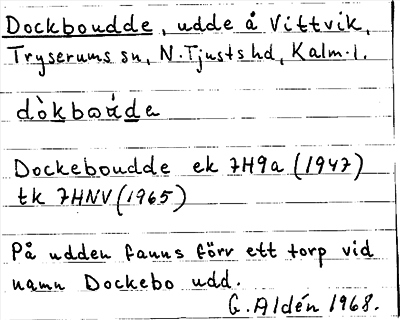 Dockboudde, udde å Vittvik,
Tryserums sn, N. Tjusts hd, Kalm. l.
Dockeboudde ek 7H9a (1947)
tk 7HNV (1965)
På udden fanns förr ett torp vid
namn Dockebo udd.
G. Aldén 1968.